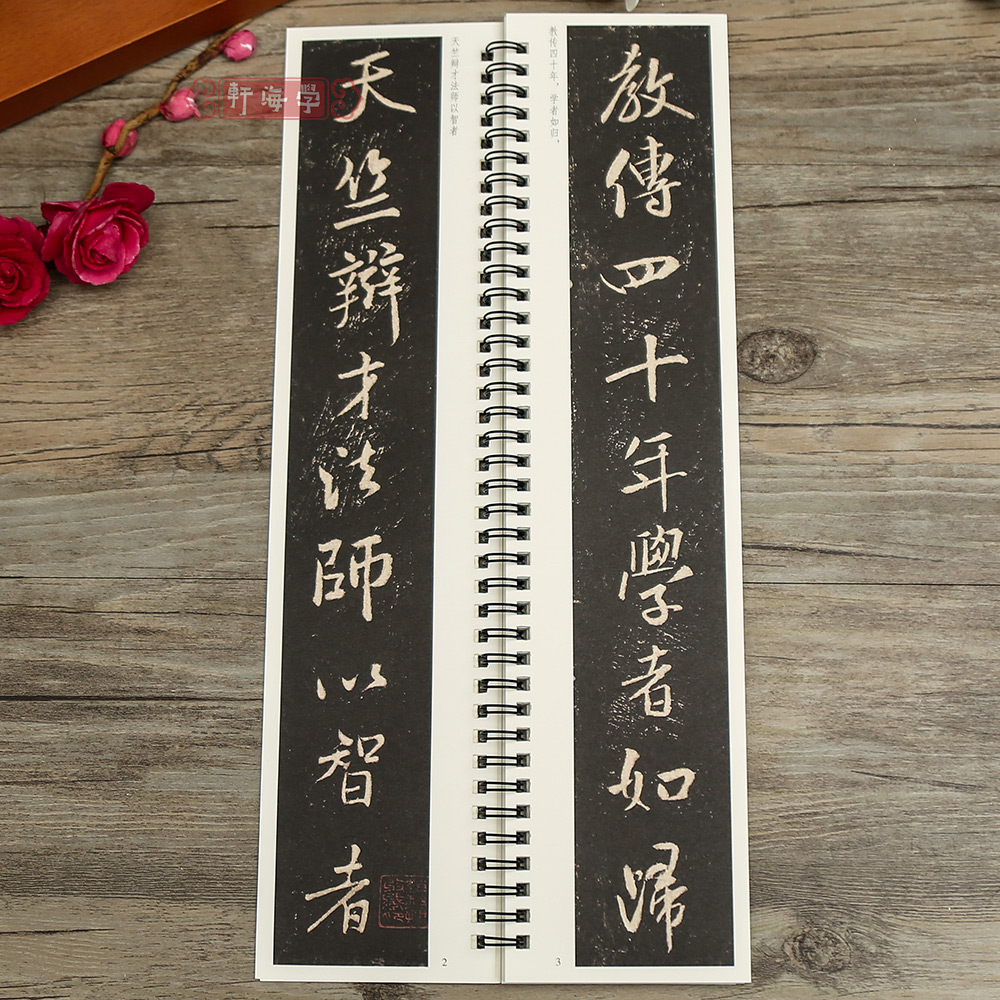 軒海學
天竺辯才法師以智者
天竺辩才法师以智者
2
教傳四十年學者如歸
教传四十年，学者如归、
3